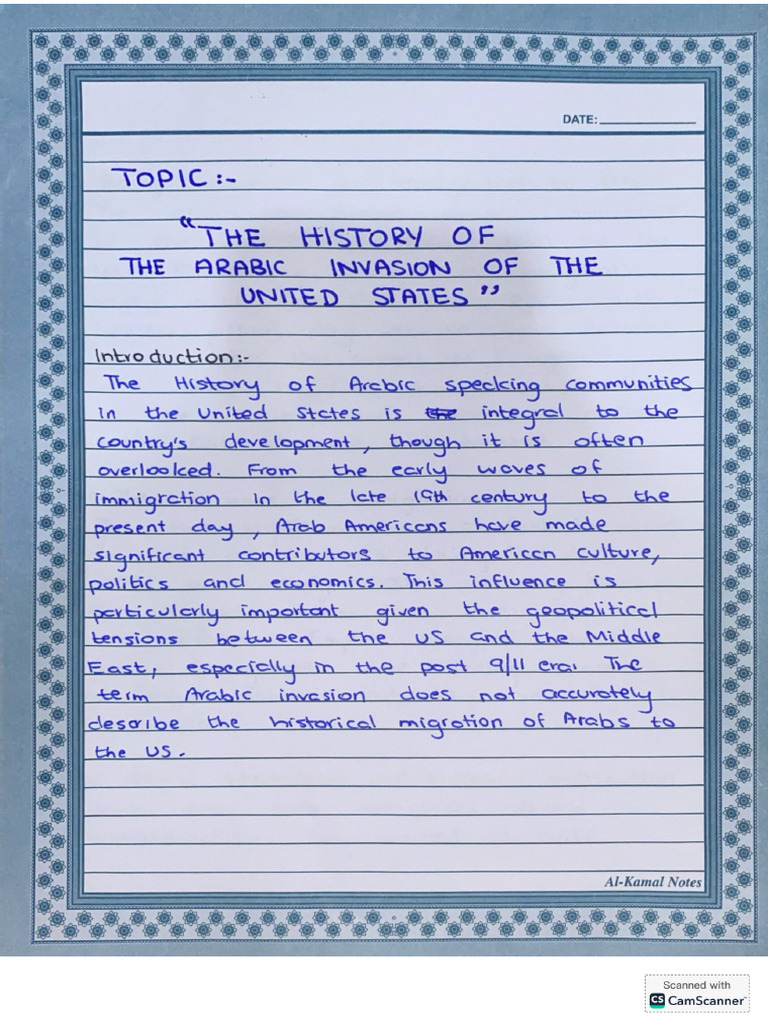 DATE:
TOPIC :-
"THE HISTORY OF
THE ARABIC INVASION OF THE
UNITED STATES"
Introduction:-
The History of Arabic speaking communities
in the United States is the integral to the
country's development, though it is often
overlooked. From the early waves of
immigration in the late 19th century to the
present day, Arab Americans have made
significant contributors to American culture,
politics and economics. This influence is
particularly important given the geopolitical
tensions between the US and the Middle
East, especially in the post 9/11 era. The
term Arabic invasion does not accurately
describe the historical migration of Arabs to
the US.
Al-Kamal Notes
Scanned with
CS CamScanner